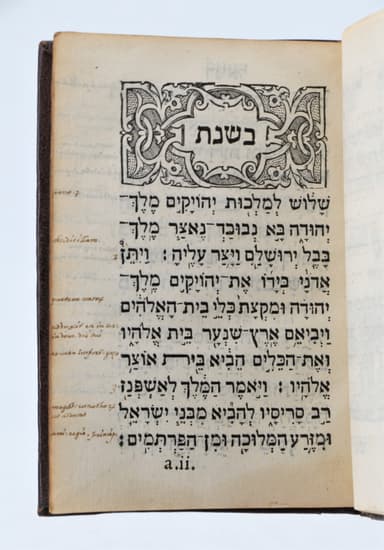 בשנת
שָׁלוֹשׁ לְמַלְכוּת יְהוֹיָקִים מֶלֶךְ־
יְהוּדָה בָּא נְבוּכַדְ־נֶאצַּר מֶלֶךְ־
בָּבֶל יְרוּשָׁלַםִ וַיָּצַר עָלֶיהָ׃ וַיִּתֵּן
אֲדֹנָי בְּיָדוֹ אֶת־יְהוֹיָקִים מֶלֶךְ־
יְהוּדָה וּמִקְצָת כְּלֵי בֵית־הָאֱלֹהִים
וַיְבִיאֵם אֶרֶץ־שִׁנְעָר בֵּית אֱלֹהָיו
וְאֶת־הַכֵּלִים הֵבִיא בֵּית אוֹצַר
אֱלֹהָיו׃ וַיֹּאמֶר הַמֶּלֶךְ לְאַשְׁפְּנַז
רַב סָרִיסָיו לְהָבִיא מִבְּנֵי יִשְׂרָאֵל
וּמִזֶּרַע הַמְּלוּכָה וּמִן־הַפַּרְתְּמִים׃
a.ii.